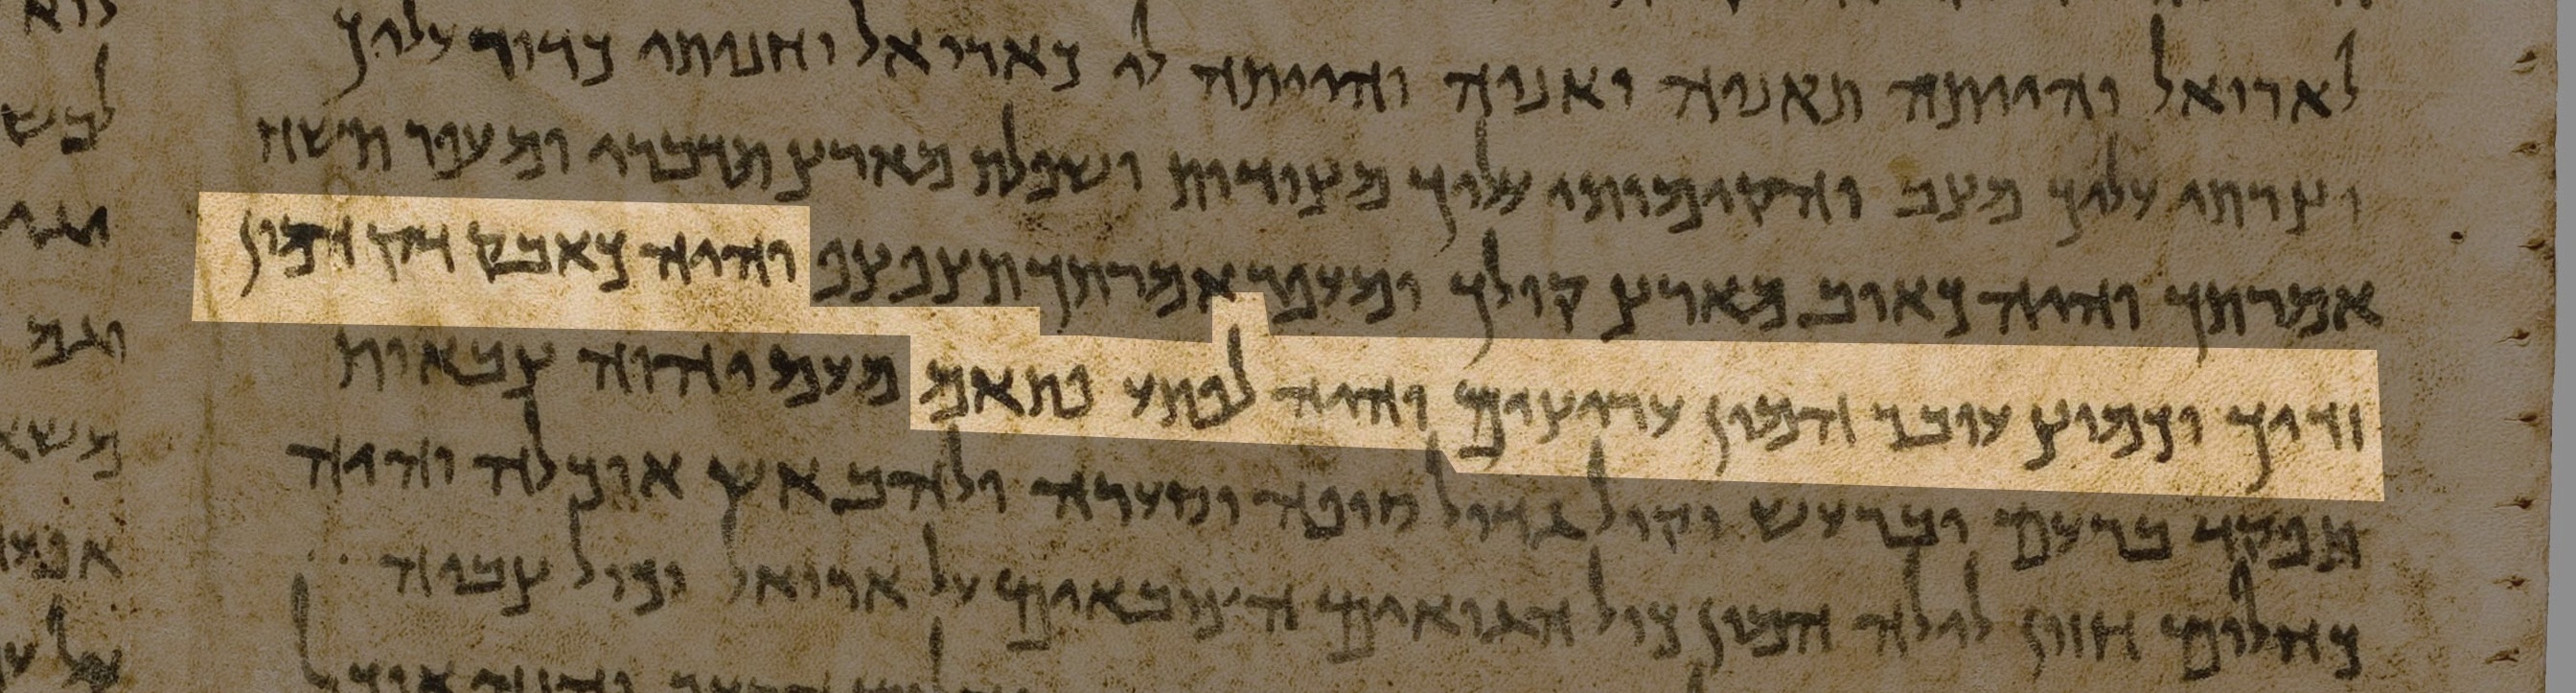 לאריאל והייתה תאניה ואניה והייתה לי כאריאל וחניתי כדור עליך
וצרתי עליך מצב והקימותי עליך מצורות ושפלת מארץ תדברי ומעפר תשח
אמרתך והיה כאוב מארץ קולך ומעפר אמרתך תצפצף והיה כאבק דק המון
זדיך וכמוץ עובר המון עריצים והיה לפתע פתאם מעם יהוה צבאות
תפקד ברעם וברעש וקול גדול סופה וסערה ולהב אש אוכלה והיה
כחלום חזון לילה המון כול הגואים הצובאים על אריאל וכול